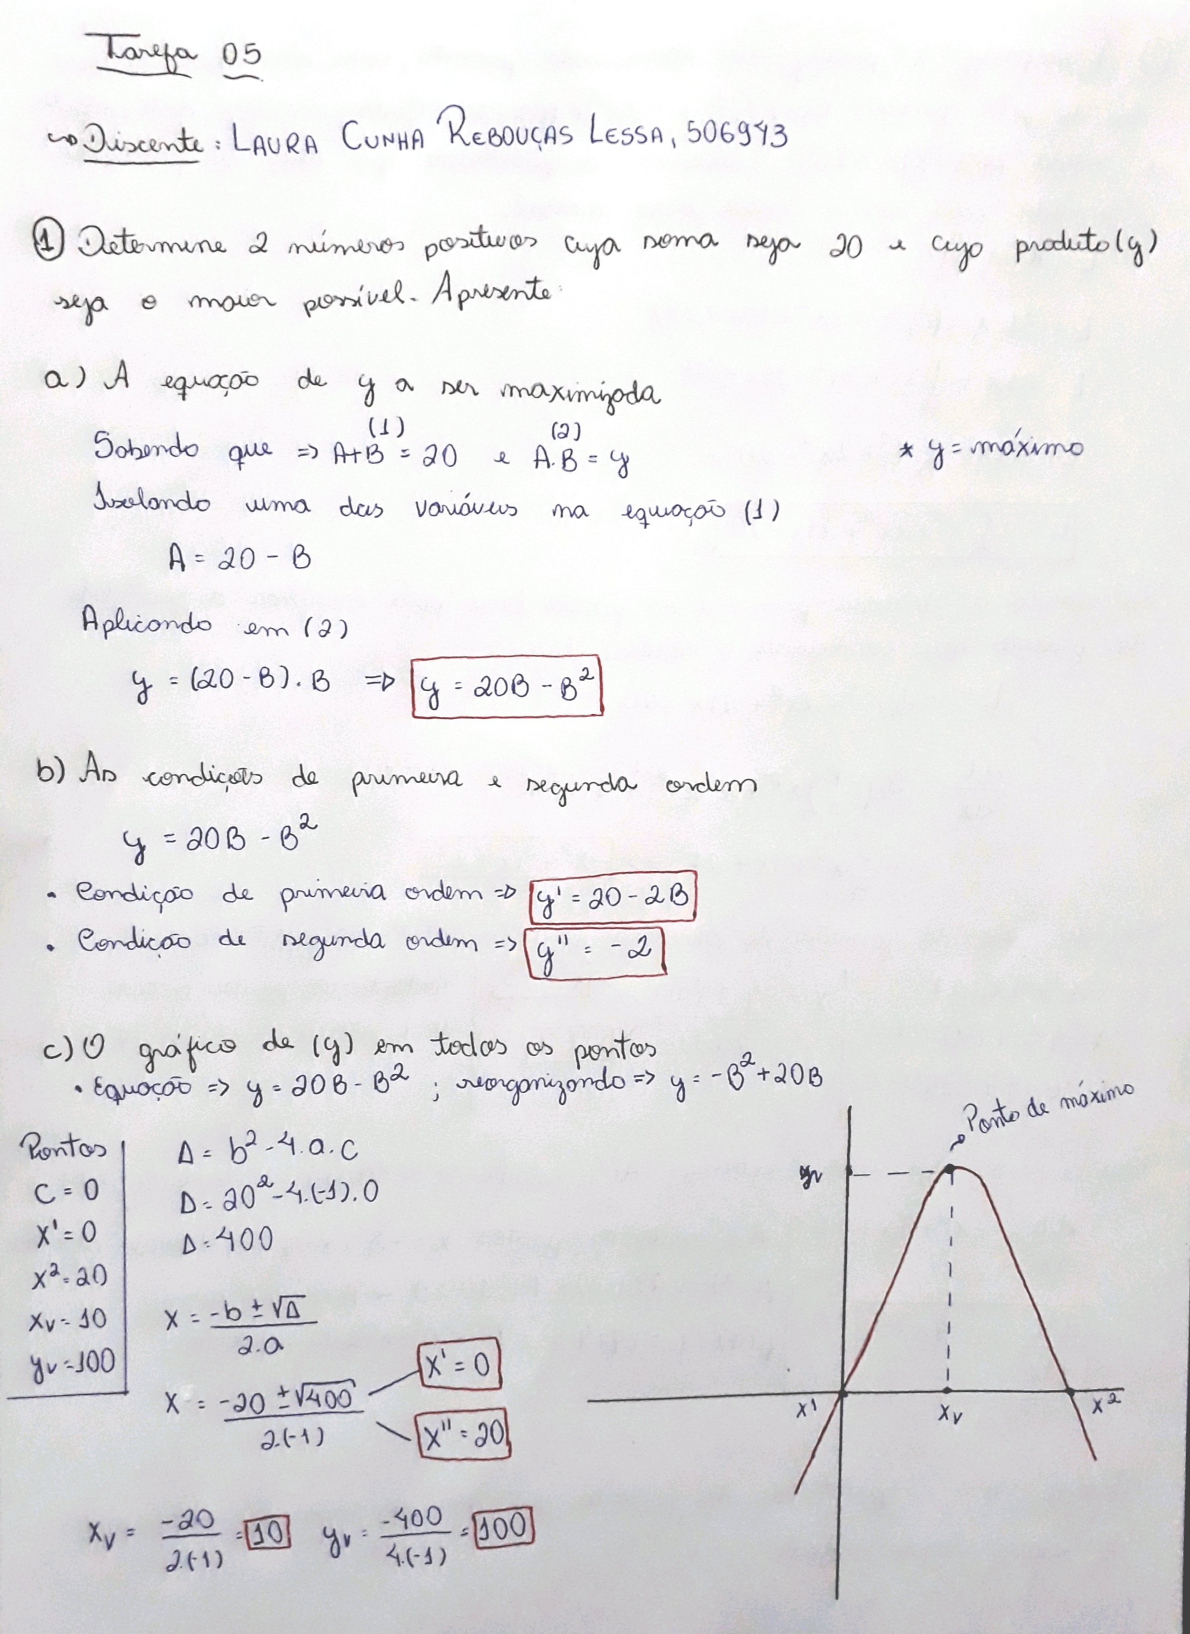 Tarefa 05
Discente: LAURA CUNHA REBOUÇAS LESSA, 506943
1) Determine 2 números positivos cuja soma seja 20 e cujo produto (y)
seja o maior possível. Apresente:
a) A equação de y a ser maximizada
(1) (2)
Sabendo que => A+B = 20 e A.B = y * y = máximo
Isolando uma das variáveis na equação (1)
A = 20 - B
Aplicando em (2)
y = (20 - B) . B => y = 20B - B²
b) As condições de primeira e segunda ordem
y = 20B - B²
• Condição de primeira ordem => y' = 20 - 2B
• Condição de segunda ordem => y'' = -2
c) O gráfico de (y) em todos os pontos
• Equação => y = 20B - B² ; reorganizando => y = -B² + 20B
Pontos
C = 0
x' = 0
x² = 20
xv = 10
yv = 100
Δ = b² - 4.a.c
Δ = 20² - 4.(-1).0
Δ = 400
x = -b ± √Δ
2.a
x = -20 ± √400
2.(-1)
x' = 0
x'' = 20
Ponto de máximo
yv
x¹ xv x²
xv = -20 / 2.(-1) = 10 yv = -400 / 4.(-1) = 100